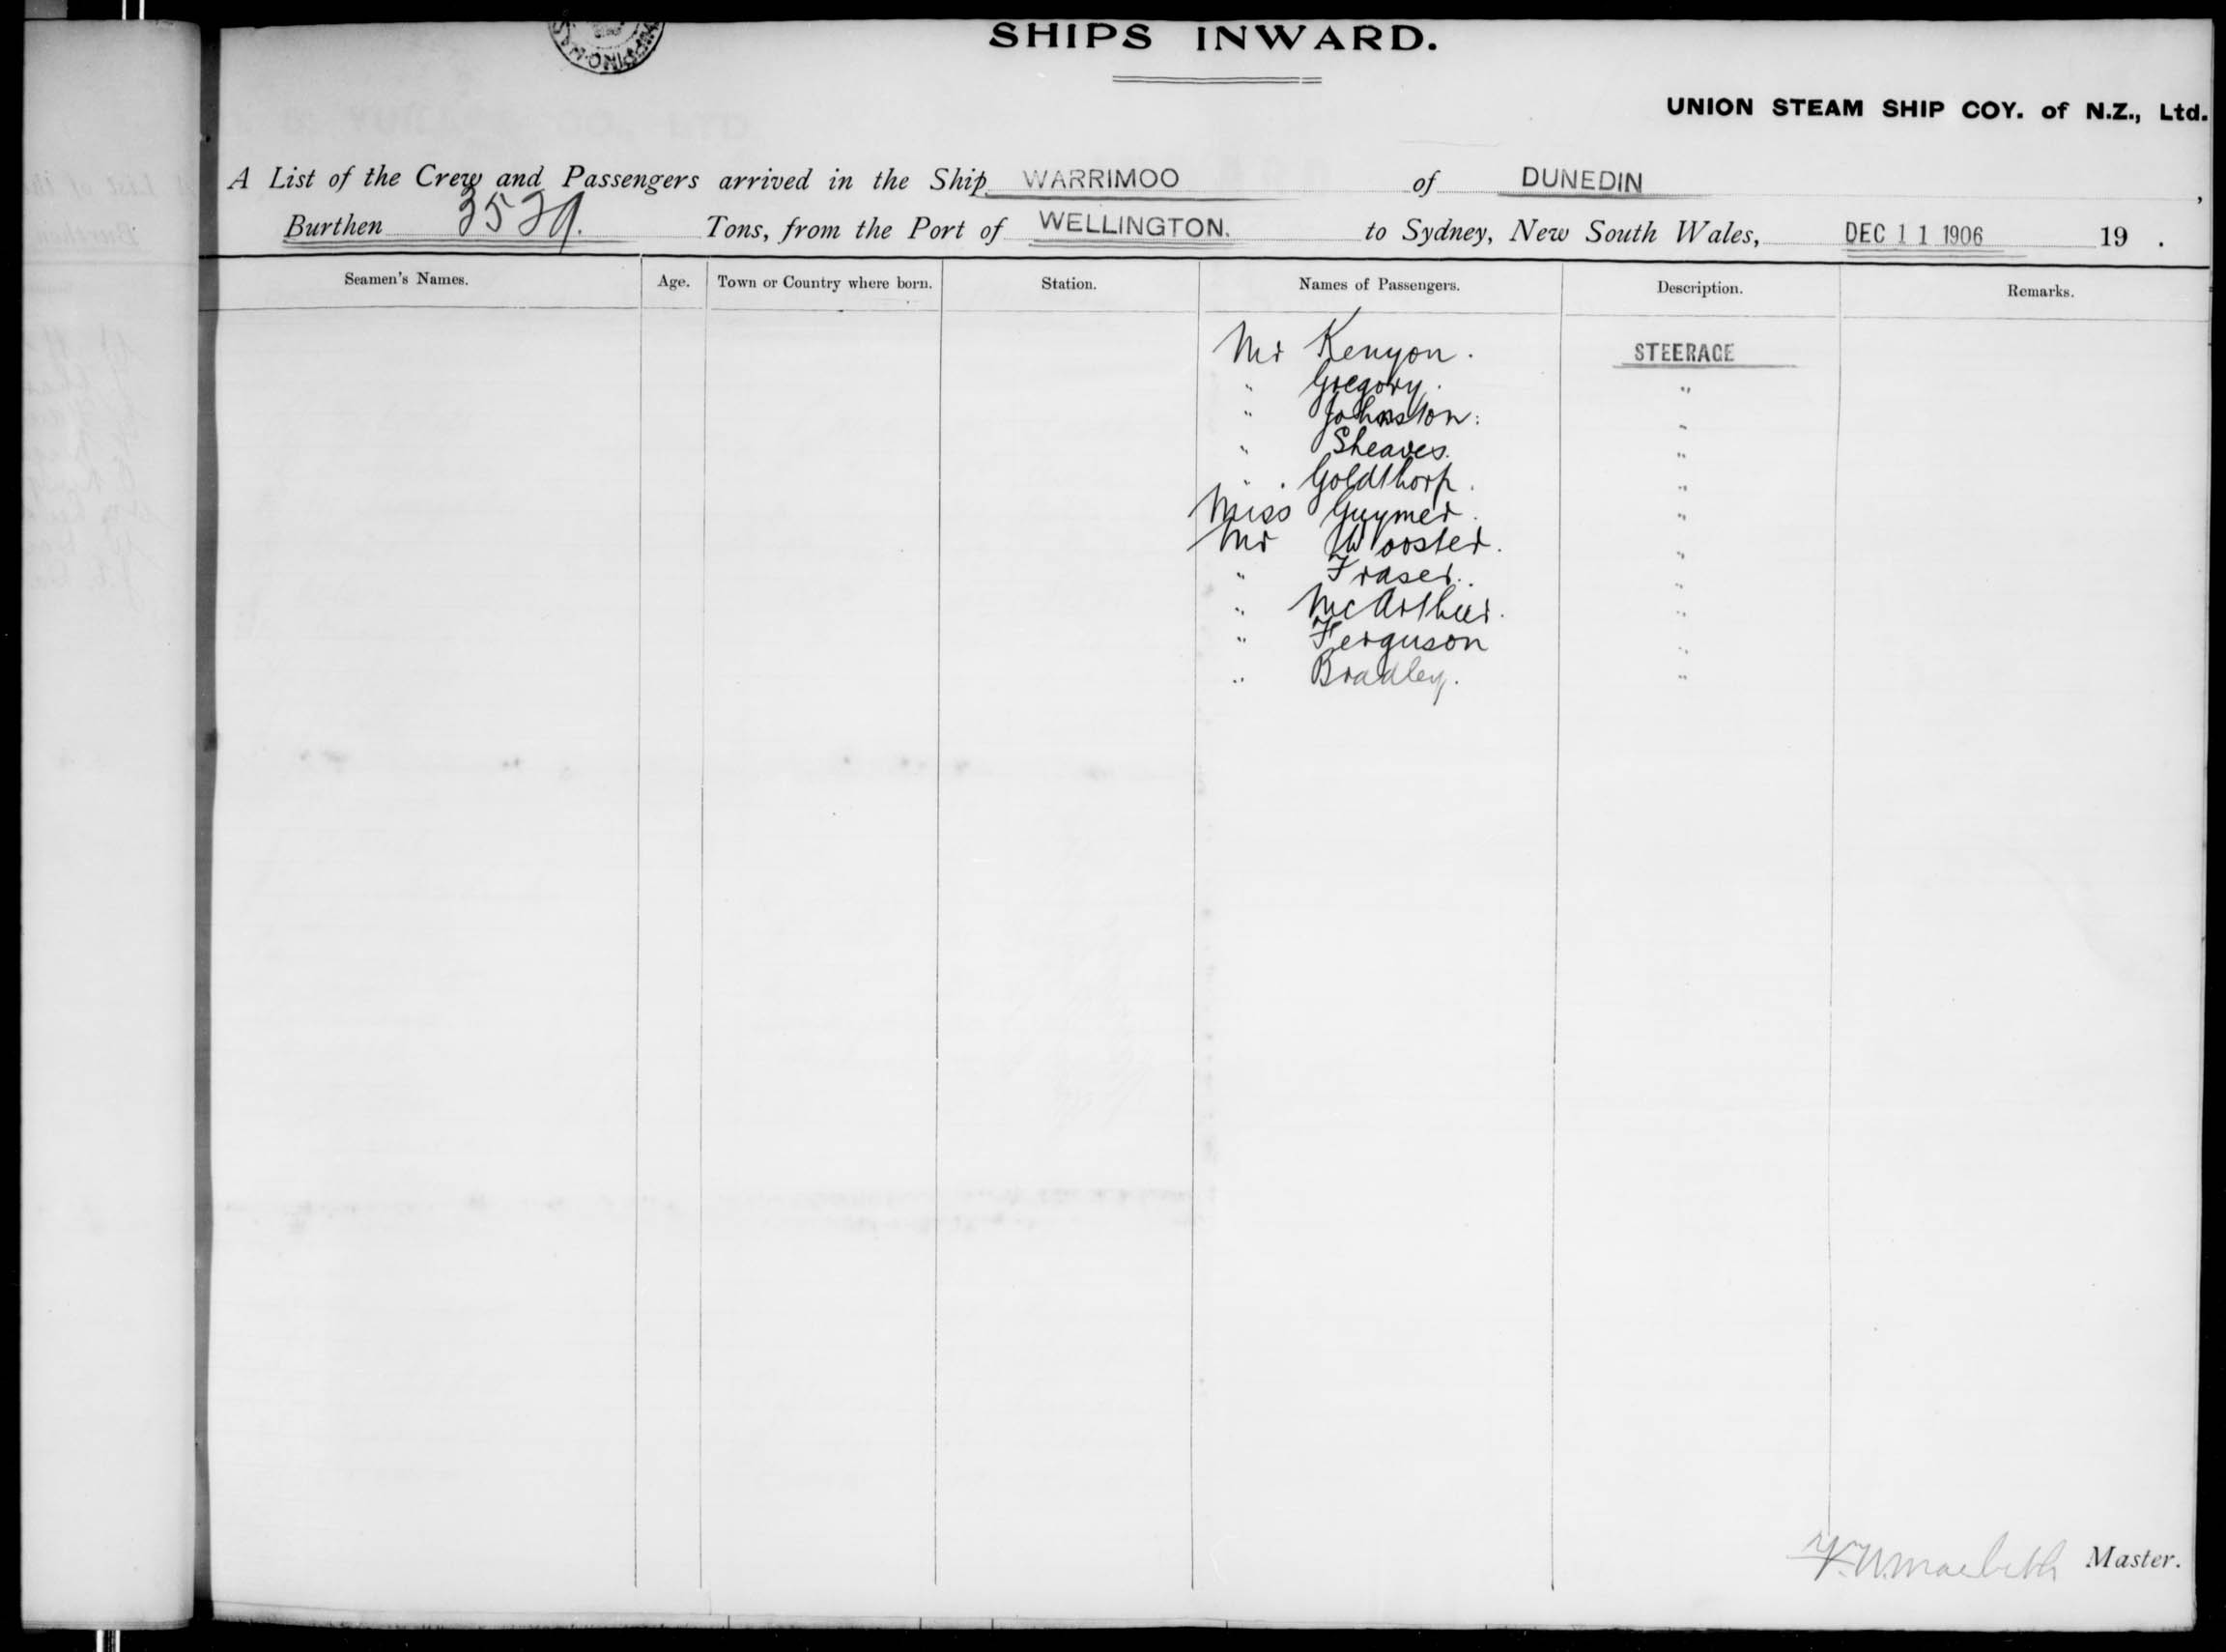 SHIPS INWARD.
UNION STEAM SHIP COY. of N.Z., Ltd.
A List of the Crew and Passengers arrived in the Ship WARRIMOO of DUNEDIN,
Burthen 3529. Tons, from the Port of WELLINGTON. to Sydney, New South Wales, DEC 11 1906 19 .
Seamen's Names. Age. Town or Country where born. Station. Names of Passengers. Description. Remarks.
Mr Kenyon. STEERAGE
" Gregory. "
" Johnston. "
" Sheaves. "
" Goldthorp. "
Miss Guymer. "
Mr Wooster. "
" Fraser. "
" McArthur. "
" Ferguson "
" Bradley. "
Macbeth Master.